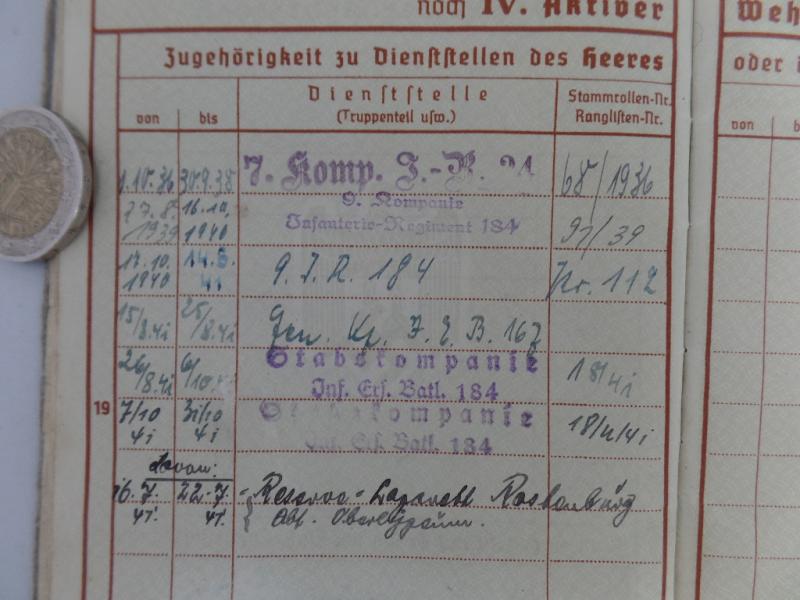 noch IV. Aktiver
Weh
Zugehörigkeit zu Dienststellen des Heeres
oder i
von bis Dienststelle (Truppenteil usw.) Stammrollen-Nr. Ranglisten-Nr.
von b
1.10.36 30.9.38 7. Komp. J.-R. 24 68/1936
27.8. 1939 16.10. 1940 9. Kompanie 91/39
Infanterie-Regiment 184
17.10. 1940 14.8. 41 9. J. R. 184 Nr. 112
15/8.41 25/8.41 Gen. Kp. J. E. B. 167
26/8.41 6/10. Stabskompanie 18/41
Inf. Ers. Batl. 184
19 7/10 41 31/10 41 Stabskompanie
Inf. Ers. Batl. 184
davon:
16.7. 41. 22.7. 41. Reserve-Lazarett
Abt.